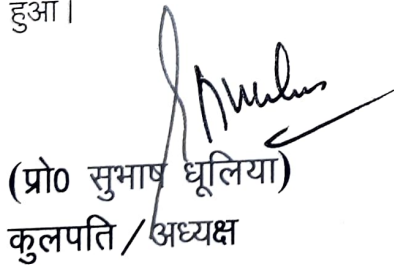 हुआ।
(प्रो0 सुभाष धूलिया)
कुलपति / अध्यक्ष